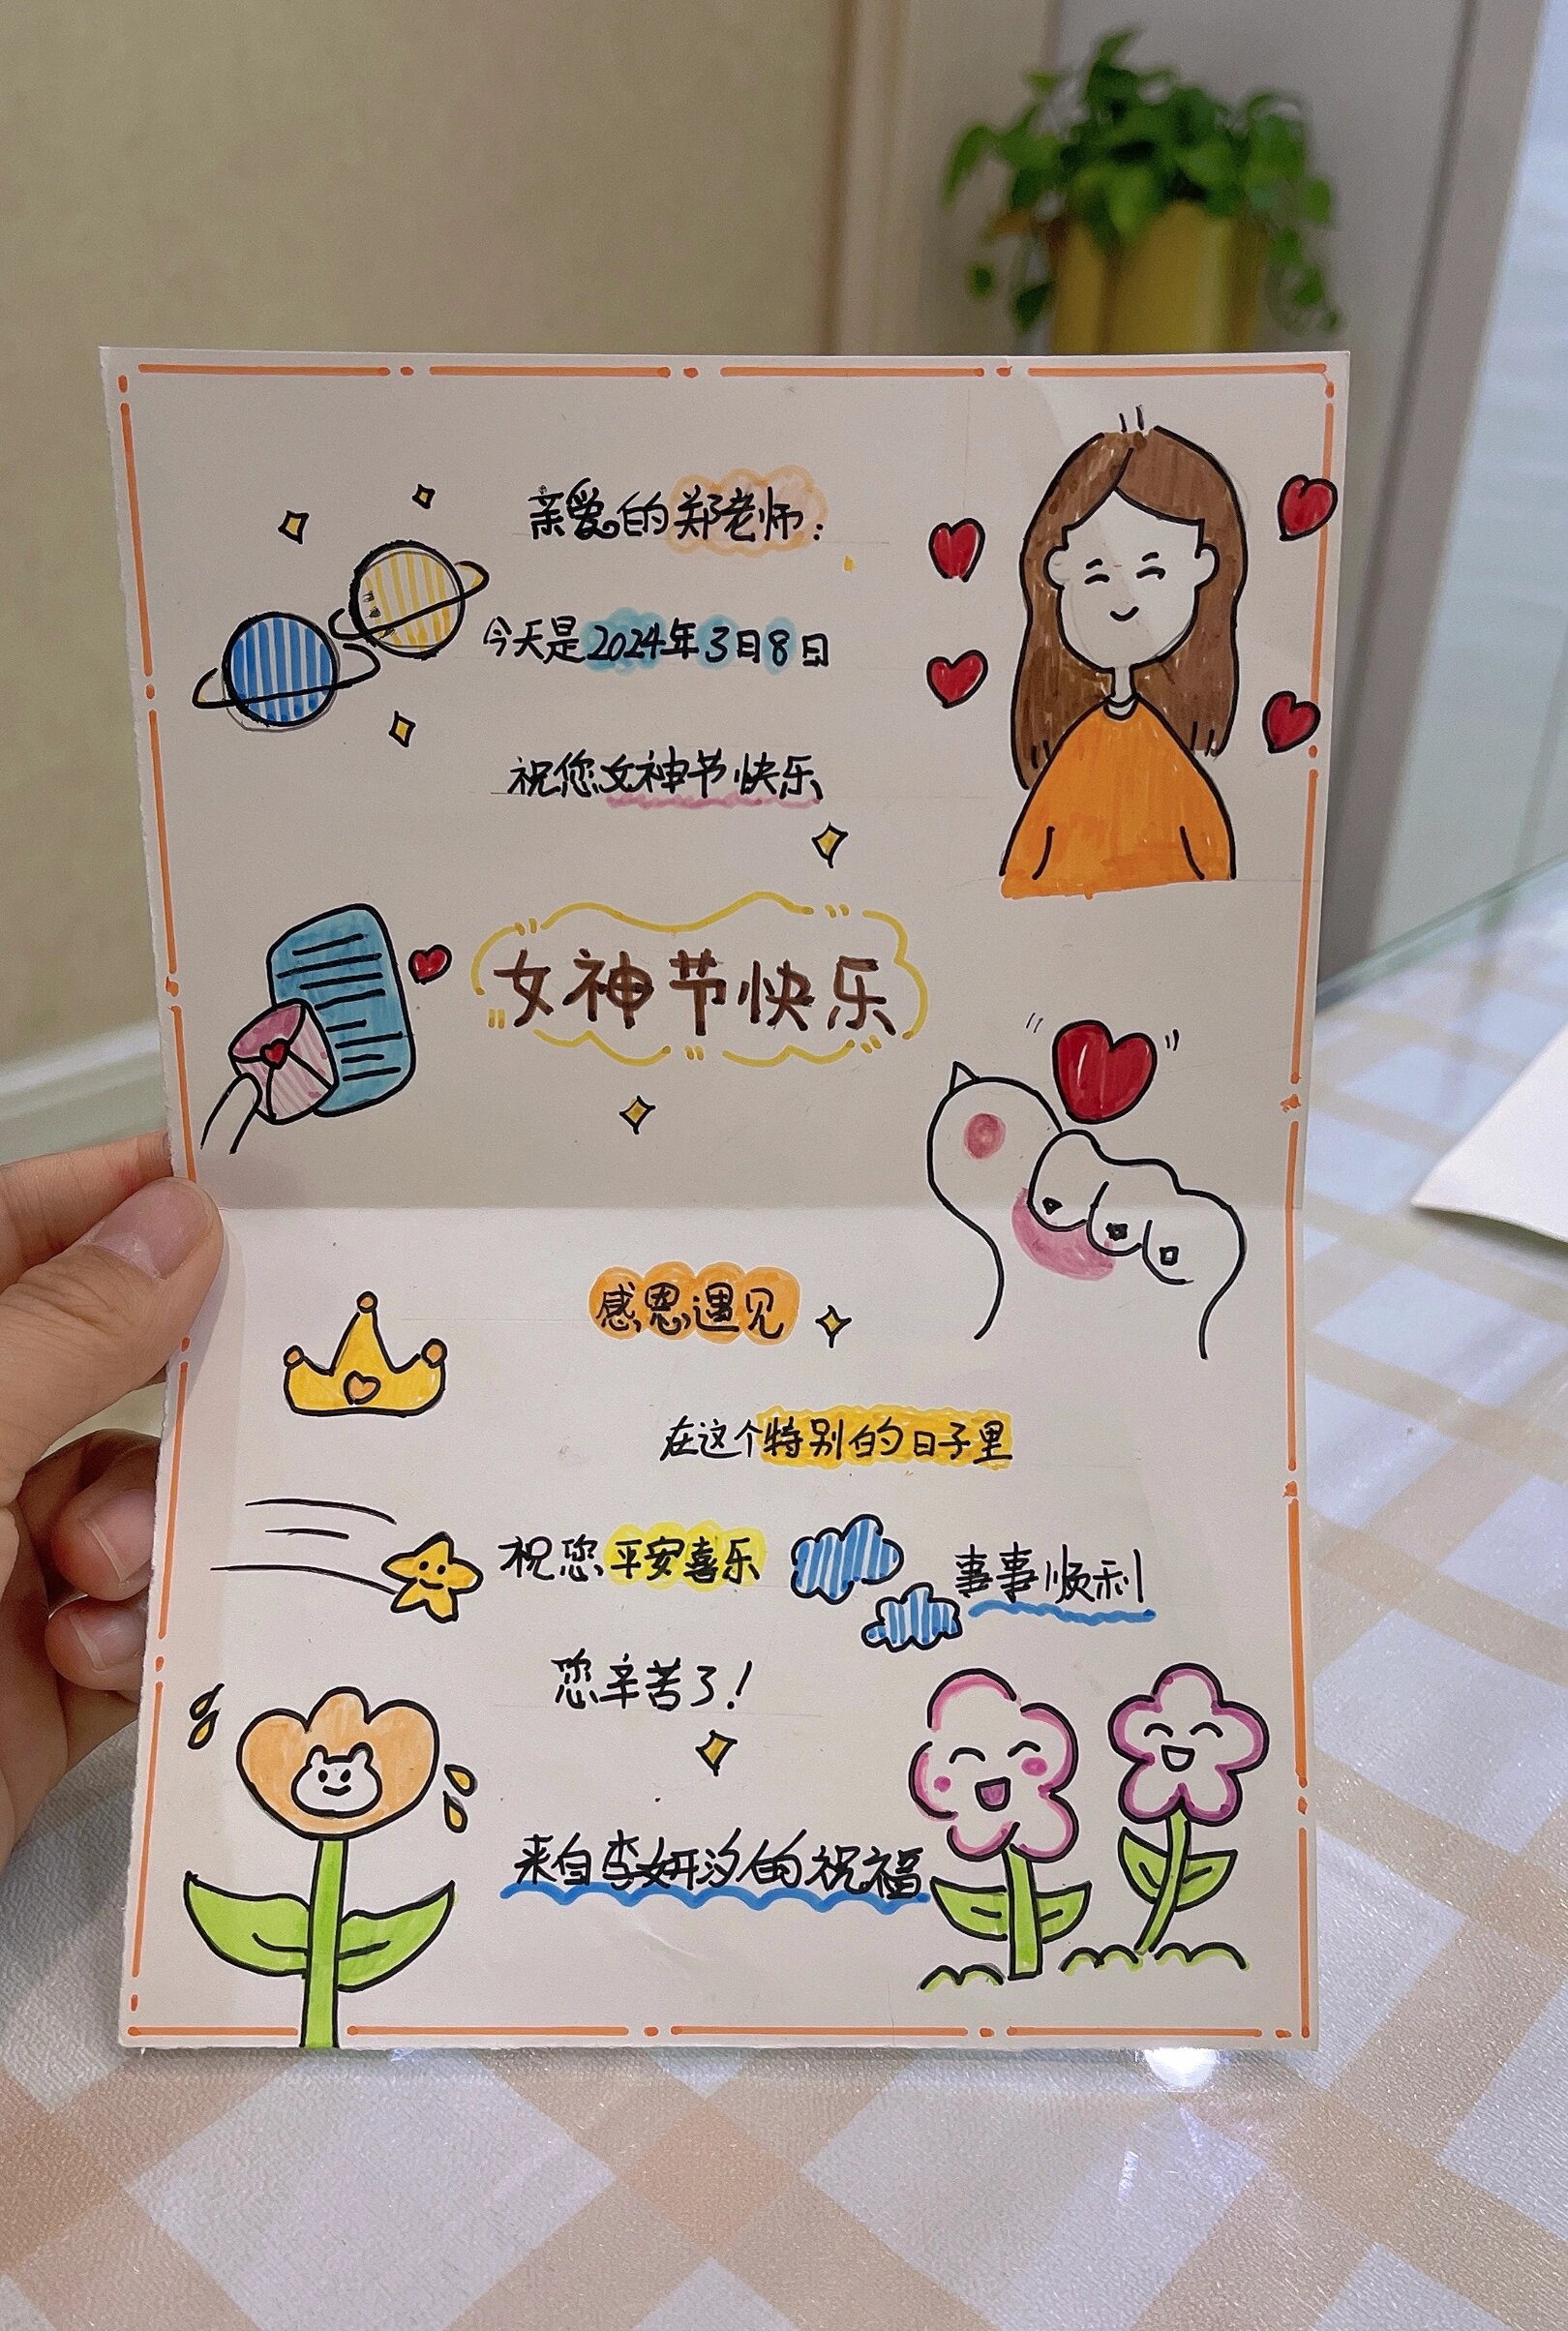 亲爱的郑老师：
今天是2024年3日8日
祝您女神节快乐
女神节快乐
感恩遇见
在这个特别的日子里
祝您平安喜乐
事事顺利
您辛苦了！
来自李妍汐的祝福